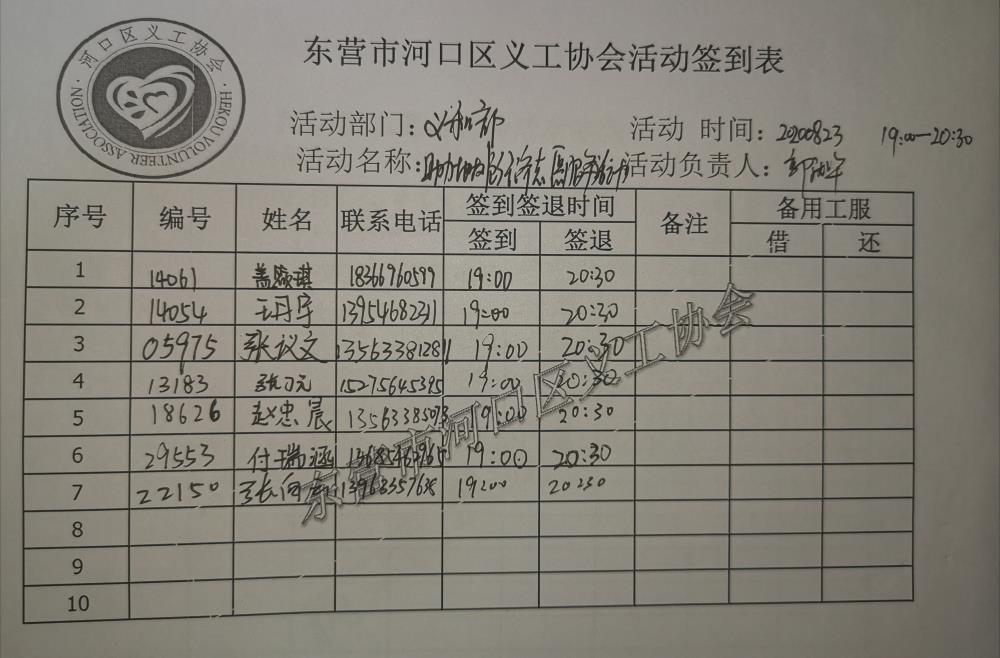 河口区义工协会
HEKOU VOLUNTEER ASSOCIATION
东营市河口区义工协会活动签到表
活动部门：义和部 活动 时间：20200823 19:00—20:30
活动名称： 活动负责人：
序号 编号 姓名 联系电话 签到签退时间 备注 备用工服
签到 签退 借 还
1 14061 盖 琪 18366960599 19:00 20:30
2 14054 王丹宇 13954682311 19:00 20:30
3 05975 张议文 13563381281 19:00 20:30
4 13183 张 元 15275645395 19:00 20:30
5 18626 赵忠晨 13563385073 19:00 20:30
6 29553 付瑞涵 19:00 20:30
7 22150 张 13963357638 19:00 20:30
8
9
10
东营市河口区义工协会